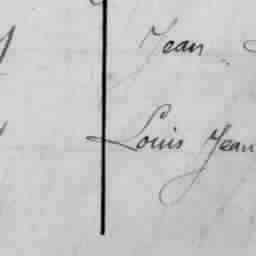 Jean
Louis Jean